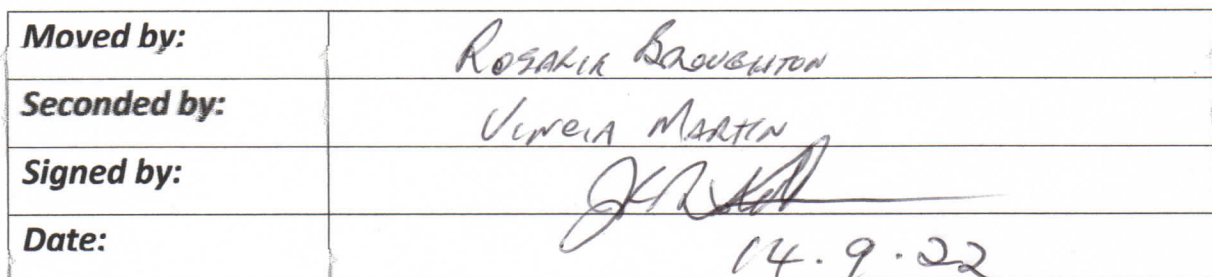 Moved by: Rosalie Broughton
Seconded by: Martin
Signed by:
Date: 14.9.22